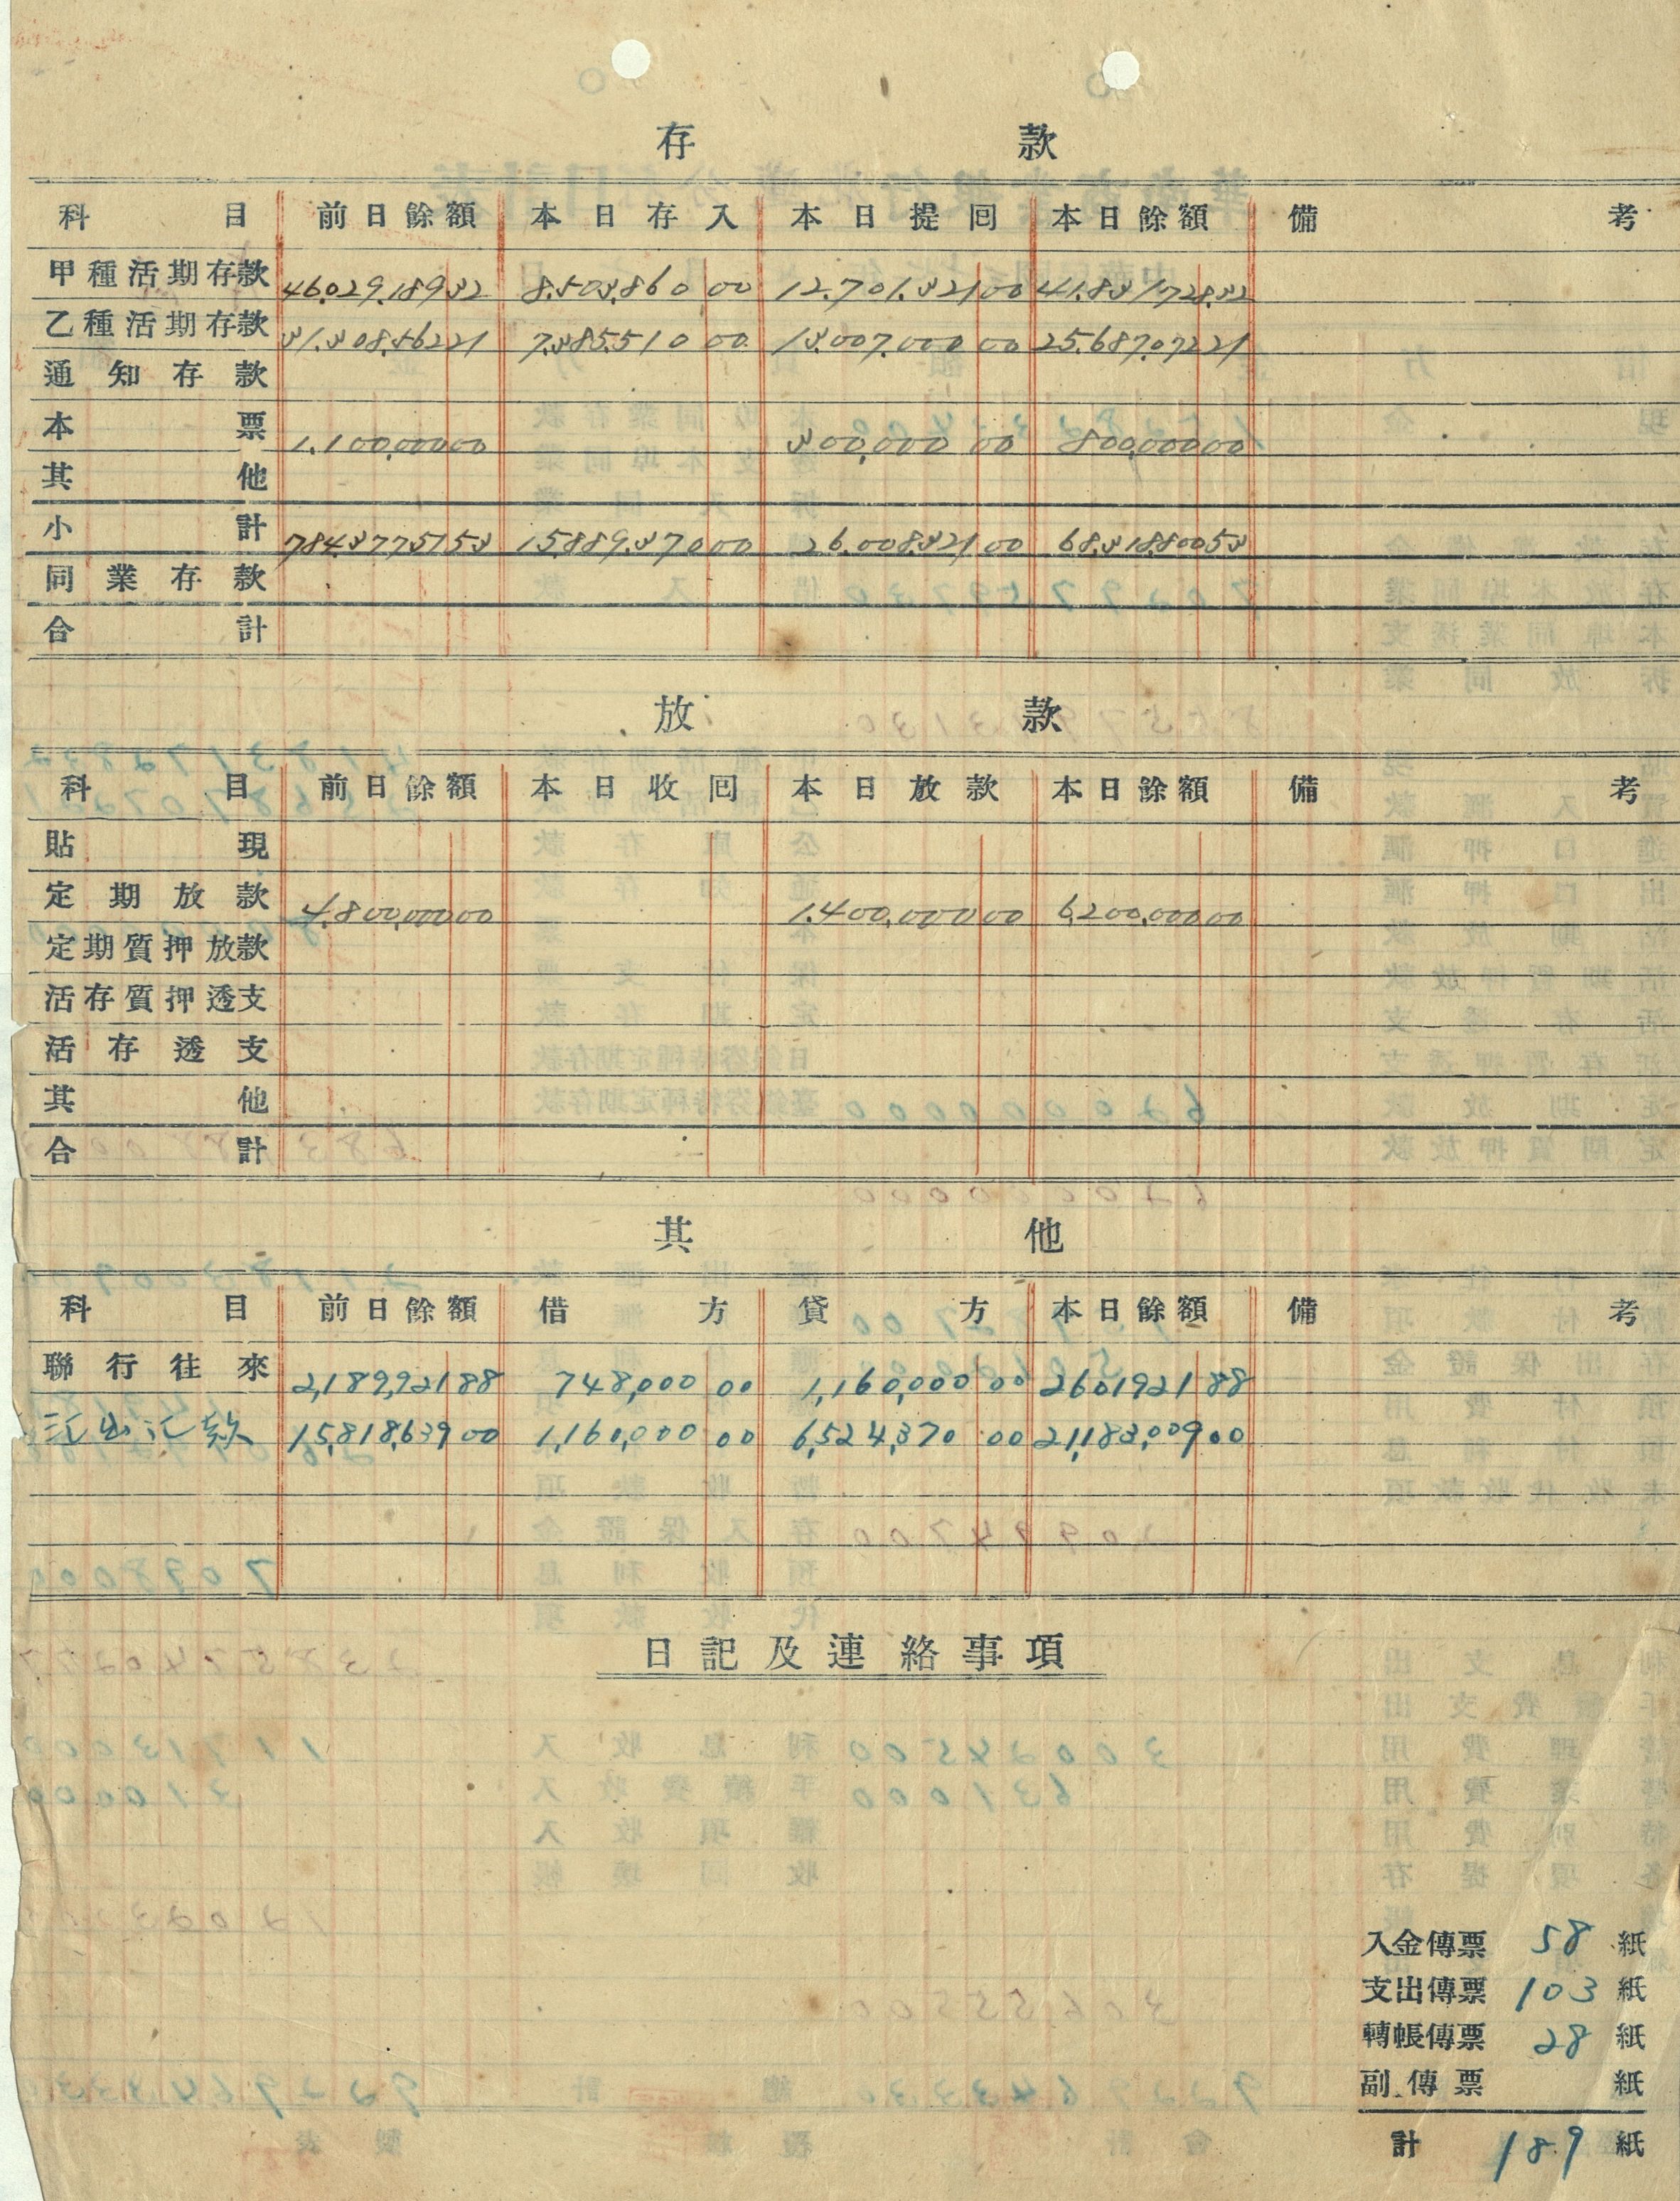 存款
科目 前日餘額 本日存入 本日提囘 本日餘額 備考
甲種活期存款 46,029,189 32 8,503,860 00 12,701,321 00 41,831,728 32
乙種活期存款 31,308,562 21 7,385,510 00 13,007,000 00 25,687,072 21
通知存款
本票 1,100,000 00 300,000 00 800,000 00
其他
小計 78,437,751 53 15,889,370 00 26,008,321 00 68,318,800 53
同業存款
合計
放款
科目 前日餘額 本日收囘 本日放款 本日餘額 備考
貼現
定期放款 4,800,000 00 1,400,000 00 6,200,000 00
定期質押放款
活存質押透支
活存透支
其他
合計
其他
科目 前日餘額 借方 貸方 本日餘額 備考
聯行往來 2,189,921 88 748,000 00 1,160,000 00 2601921 88
汇出汇款 15,818,639 00 1,160,000 00 6,524,370 00 21,183,009 00
日記及連絡事項
入金傳票 58 紙
支出傳票 103 紙
轉帳傳票 28 紙
副傳票 紙
計 189 紙